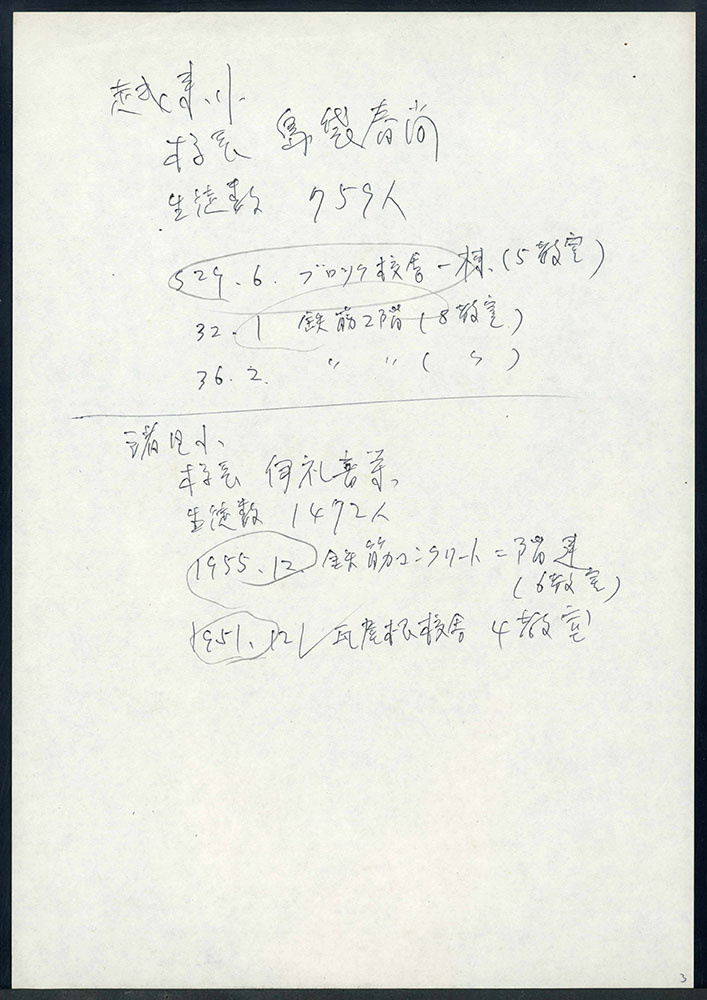 越来小
校長 島袋春尚
生徒数 759人
S29.6. ブロック校舎一棟(5教室)
32.1 鉄筋2階(8教室)
36.2. 〃 〃 ( 〃 )
諸見小
校長 伊礼
生徒数 1472人
1955.12. 鉄筋コンクリート二階建
(6教室)
1951.12 瓦屋根校舎 4教室
3